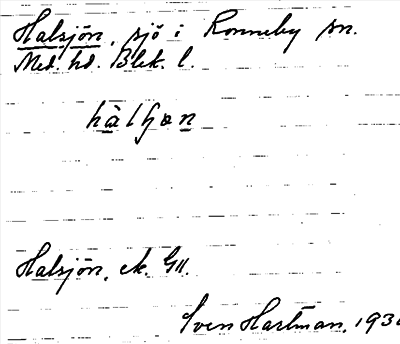 Halsjön, sjö i Ronneby sn.
Med. hd. Blek. l.
Halsjön, ek. G11.
Sven Hartman, 193